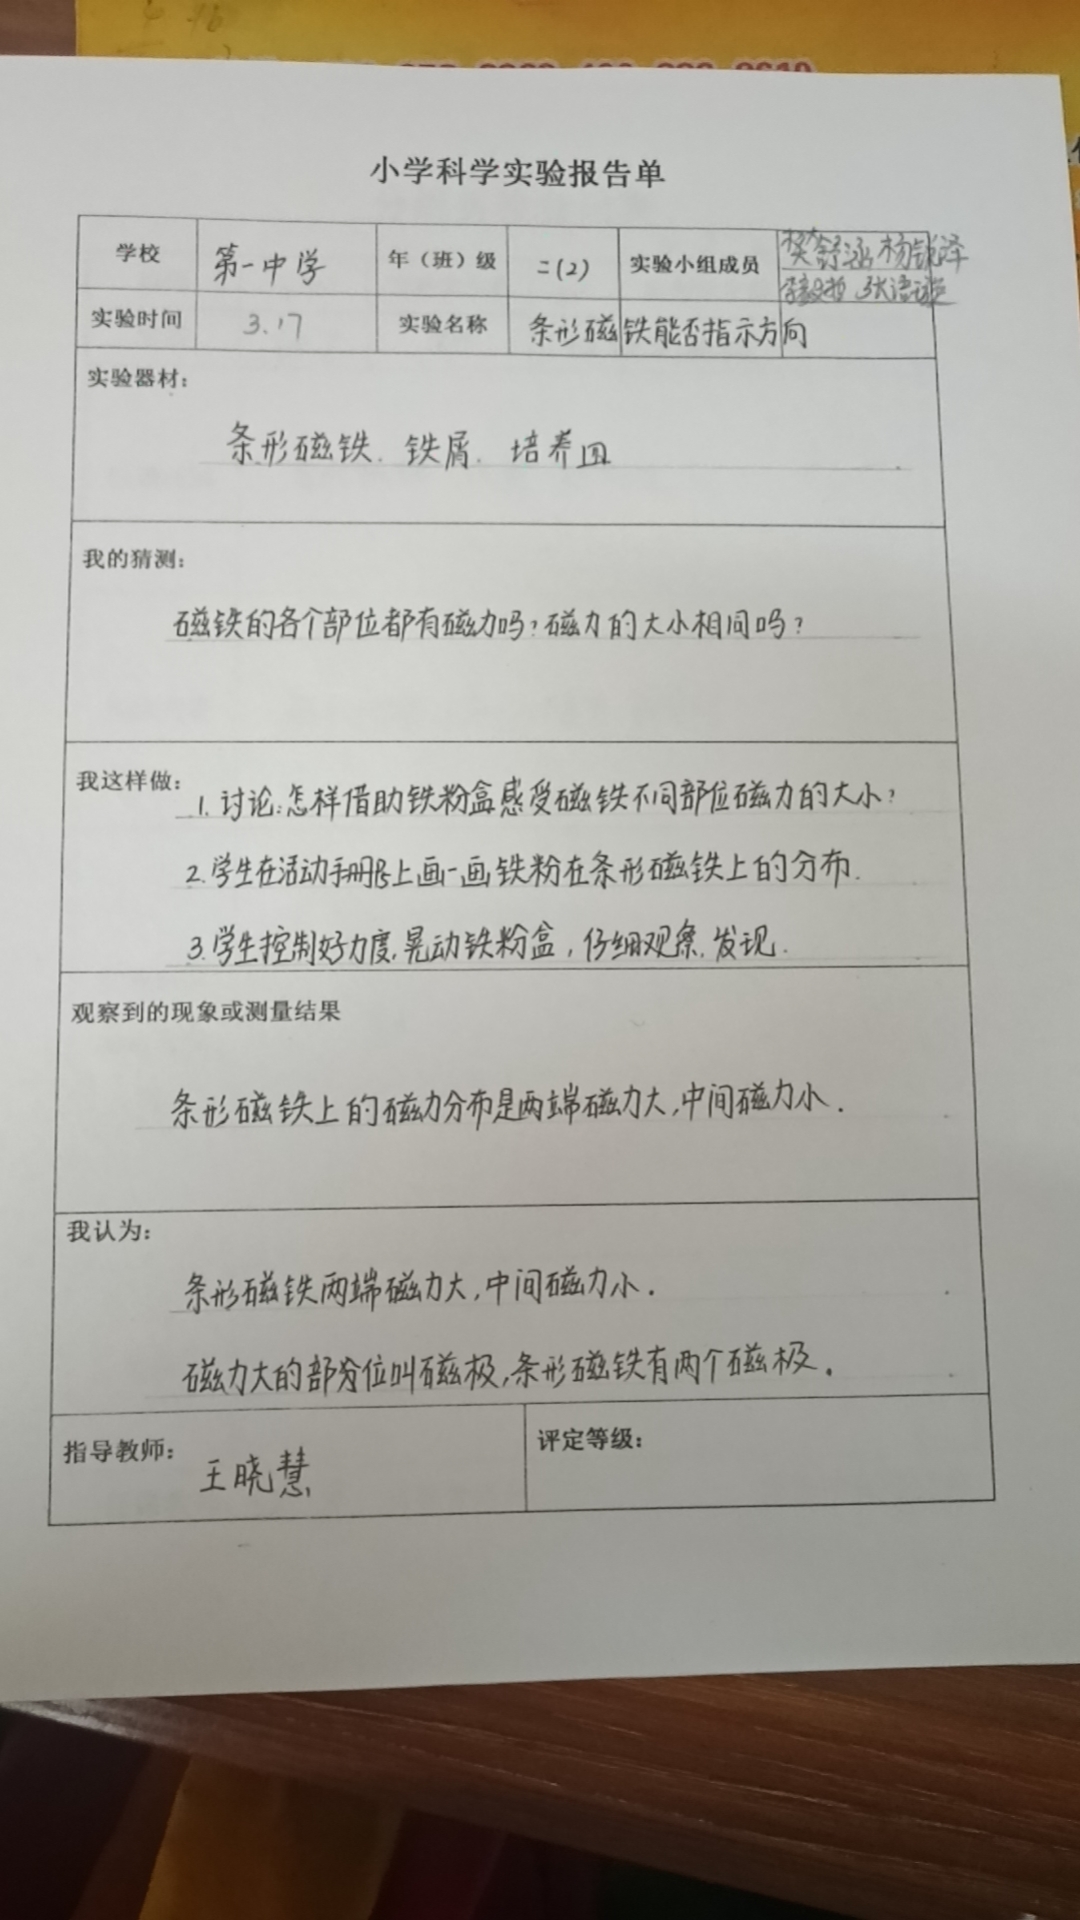 小学科学实验报告单
学校 第一中学 年（班）级 二(2) 实验小组成员 樊舒涵 杨锐泽
张语
实验时间 3.17 实验名称 条形磁铁能否指示方向
实验器材：
条形磁铁. 铁屑. 培养皿
我的猜测：
磁铁的各个部位都有磁力吗?磁力的大小相同吗?
我这样做：
1. 讨论:怎样借助铁粉盒感受磁铁不同部位磁力的大小?
2.学生在活动手册上画一画铁粉在条形磁铁上的分布.
3.学生控制好力度,晃动铁粉盒,仔细观察,发现.
观察到的现象或测量结果
条形磁铁上的磁力分布是两端磁力大,中间磁力小.
我认为：
条形磁铁两端磁力大,中间磁力小.
磁力大的部位叫磁极,条形磁铁有两个磁极.
指导教师： 王晓慧 评定等级：